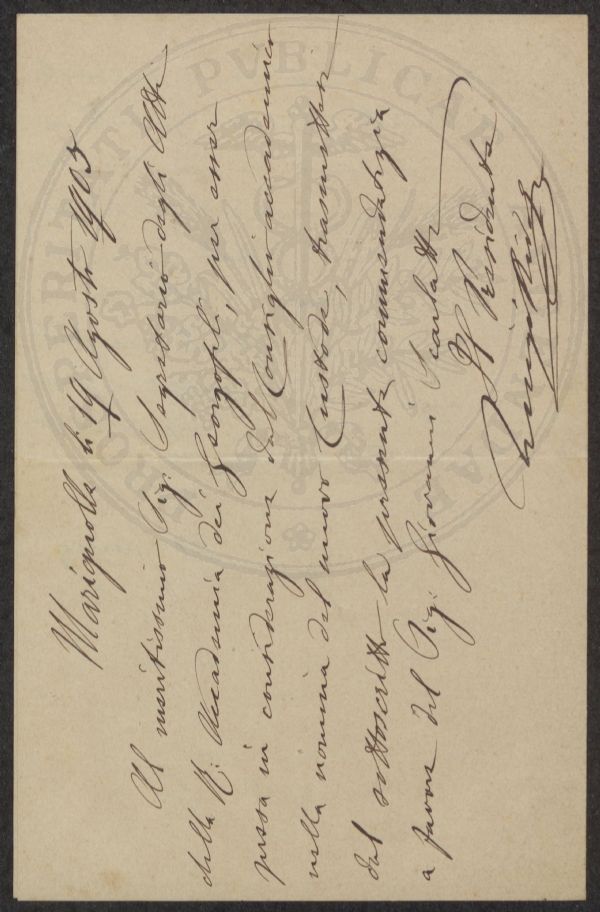 Marignolla li 19 Agosto 1905
Al meritissimo Sig. Segretario degli Atti
della R. Accademia dei Georgofili, per esser
presa in considerazione dal Consiglio accademico
nella nomina del nuovo Custode, trasmettesi
dal sottoscritto la presente commendatizia
a favore del Sig. Giovanni Scarlatti
Il Presidente
Luigi Ridolfi
PROSPERITATI PVBLICAE